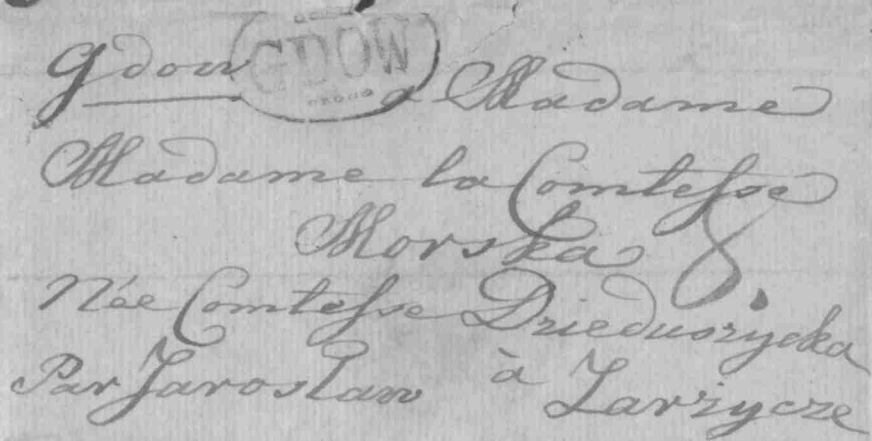 Gdow GDOW
a Madame
Madame la Comtesse
Morska 8.
Née Comtesse Dzieduszycka
Par Jaroslaw à Zarzycze